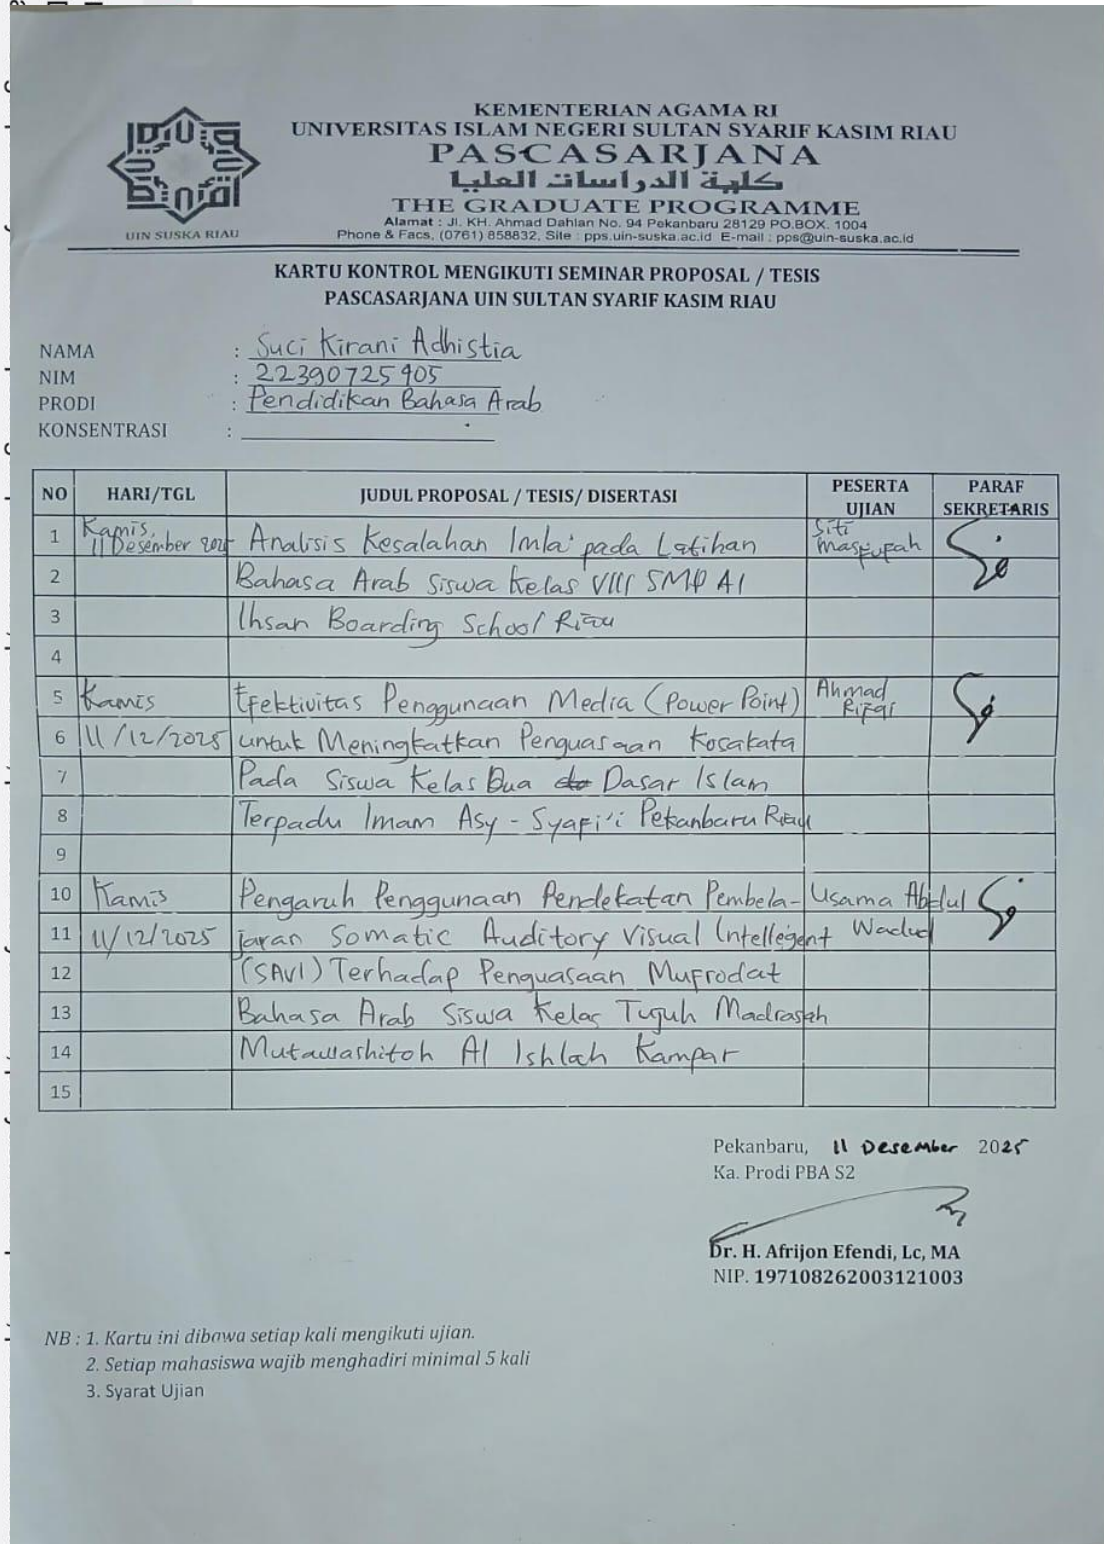 KEMENTERIAN AGAMA RI
UNIVERSITAS ISLAM NEGERI SULTAN SYARIF KASIM RIAU
PASCASARJANA
كلية الدراسات العليا
THE GRADUATE PROGRAMME
Alamat : Jl. KH. Ahmad Dahlan No. 94 Pekanbaru 28129 PO.BOX. 1004
Phone & Facs, (0761) 858832, Site : pps.uin-suska.ac.id E-mail : pps@uin-suska.ac.id
UIN SUSKA RIAU
KARTU KONTROL MENGIKUTI SEMINAR PROPOSAL / TESIS
PASCASARJANA UIN SULTAN SYARIF KASIM RIAU
NAMA : Suci Kirani Adhistia
NIM : 22390725905
PRODI : Pendidikan Bahasa Arab
KONSENTRASI :
NO HARI/TGL JUDUL PROPOSAL / TESIS/ DISERTASI PESERTA UJIAN PARAF SEKRETARIS
1 Kamis, 11 Desember 2025 Analisis Kesalahan Imla' pada Latihan Siti
2 Bahasa Arab Siswa Kelas VIII SMP Al
3 Ihsan Boarding School Riau
4
5 Kamis Efektivitas Penggunaan Media (Power Point) Ahmad Rifqi
6 11/12/2025 untuk Meningkatkan Penguasaan Kosakata
7 Pada Siswa Kelas Dua Dasar Islam
8 Terpadu Imam Asy-Syafi'i Pekanbaru Riau
9
10 Kamis Pengaruh Penggunaan Pendekatan Pembela- Usama Abdul
11 11/12/2025 jaran Somatic Auditory Visual Intellegent Wadud
12 (SAVI) Terhadap Penguasaan Mufrodat
13 Bahasa Arab Siswa Kelas Tujuh Madrasah
14 Mutawashitoh Al Ishlah Kampar
15
Pekanbaru, 11 Desember 2025
Ka. Prodi PBA S2
Dr. H. Afrijon Efendi, Lc, MA
NIP. 197108262003121003
NB : 1. Kartu ini dibawa setiap kali mengikuti ujian.
2. Setiap mahasiswa wajib menghadiri minimal 5 kali
3. Syarat Ujian